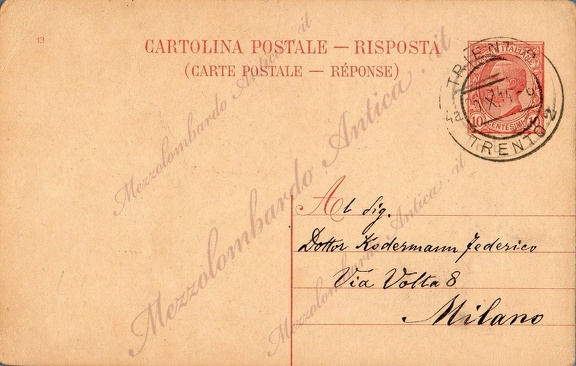 13
CARTOLINA POSTALE — RISPOSTA
(CARTE POSTALE — RÉPONSE)
TRIENT 2
TRENTO 2
10 CENTESIMI
Al Sig.
Dottor Kodermann Federico
Via Volta 8
Milano
Mezzolombardo Antica.it
Mezzolombardo Antica.it
Mezzolombardo Antica.it